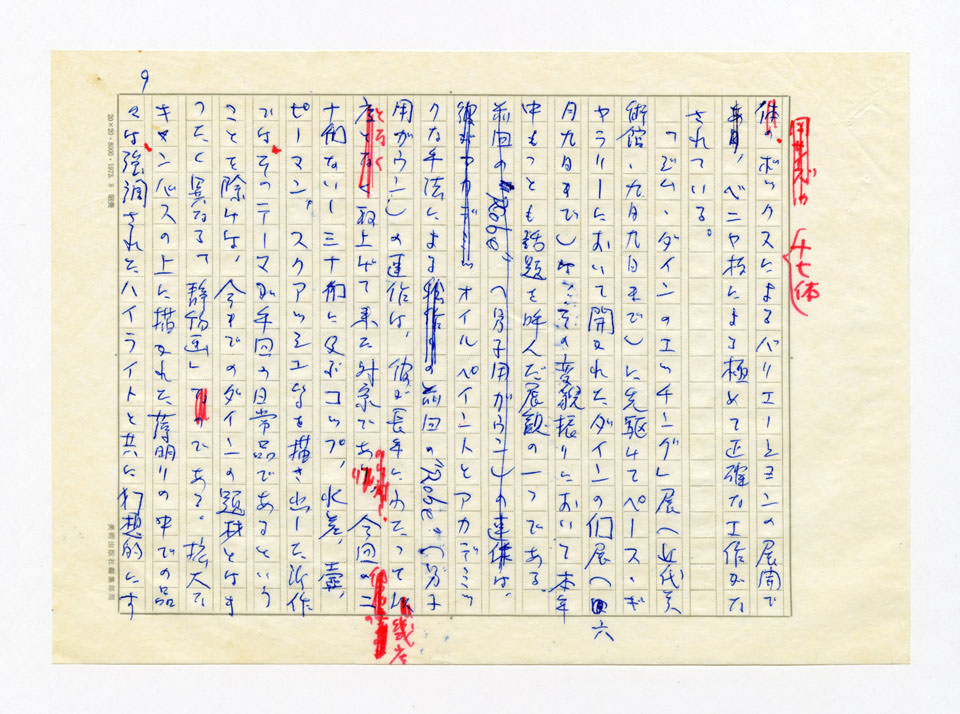 体のボックスによるバリエーションの展開で
あり、ベニヤ板による極めて正確な工作がな
されている。
「ジム・ダインのエッチング」展（近代美
術館・九月九日まで）に先駆けてペース・ギ
ャラリーにおいて開かれたダインの個展（六
月九日まで）はその変貌振りにおいて本年
中もっとも話題を呼んだ展観の一つである。
前回の"Robe"（男子用がウン）の連作は、
オイルペイントとアカデミッ
クな手法による前回の"Robe"（男子
用がウン）の連作は、彼が長年にわたって
幾度となく取上げて来た対象であり、今回の二
十個ないし三十個に及ぶコップ、水差、壷、
ピーマン、スクアッシュ等を描き出した近作
では、そのテーマが毎回の日常品であるという
ことを除けば、今までのダインの題材とはま
ったく異なる「静物画」である。拡大な
キャンバスの上に描かれた薄明りの中での品
々は、強調されたハイライトと共に幻想的にす
十七体
幾度
9
20×20・5000・1973. 8 銀座
美術出版社編集部用